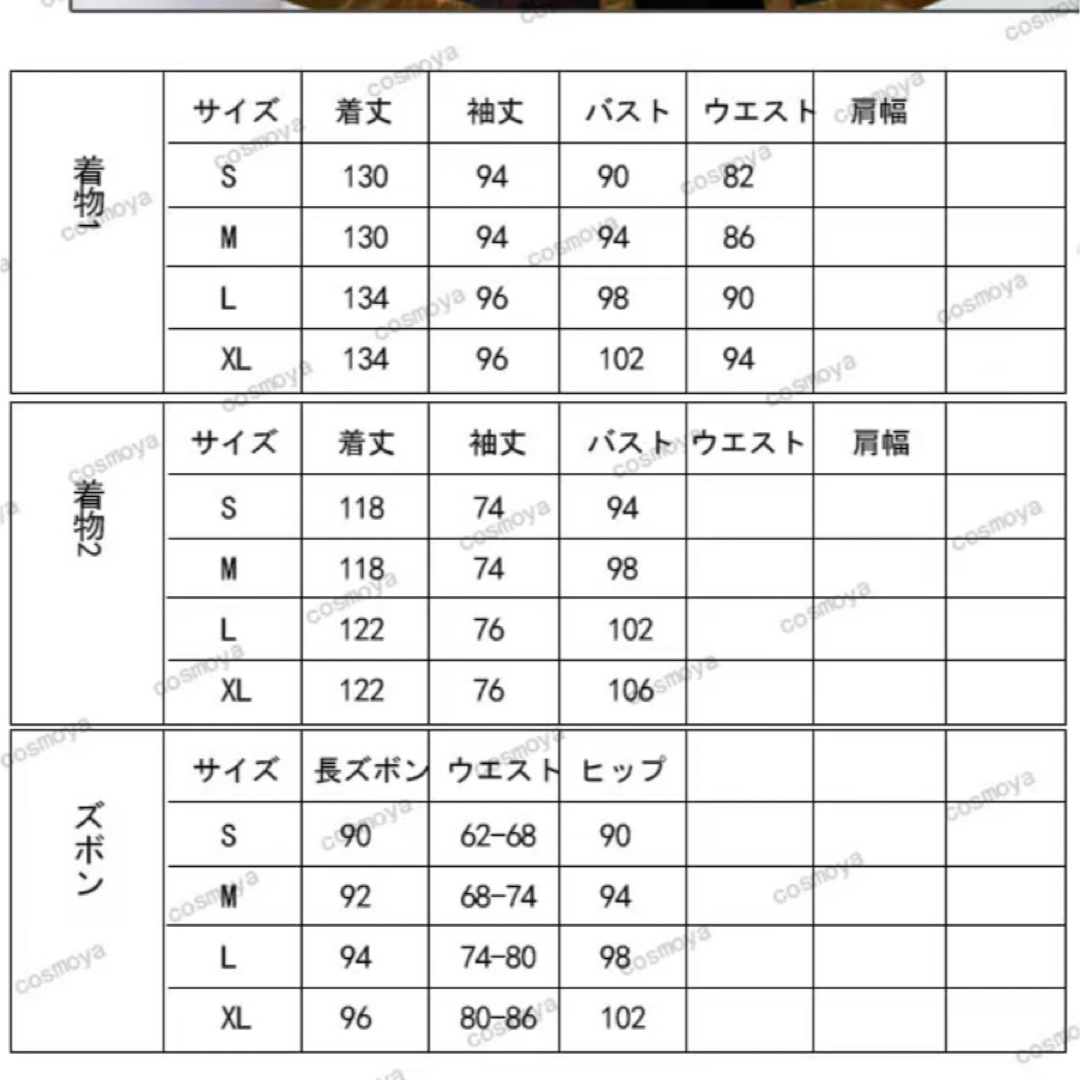 着物1
サイズ 着丈 袖丈 バスト ウエスト 肩幅
S 130 94 90 82
M 130 94 94 86
L 134 96 98 90
XL 134 96 102 94
着物2
サイズ 着丈 袖丈 バスト ウエスト 肩幅
S 118 74 94
M 118 74 98
L 122 76 102
XL 122 76 106
ズボン
サイズ 長ズボン ウエスト ヒップ
S 90 62-68 90
M 92 68-74 94
L 94 74-80 98
XL 96 80-86 102
cosmoya